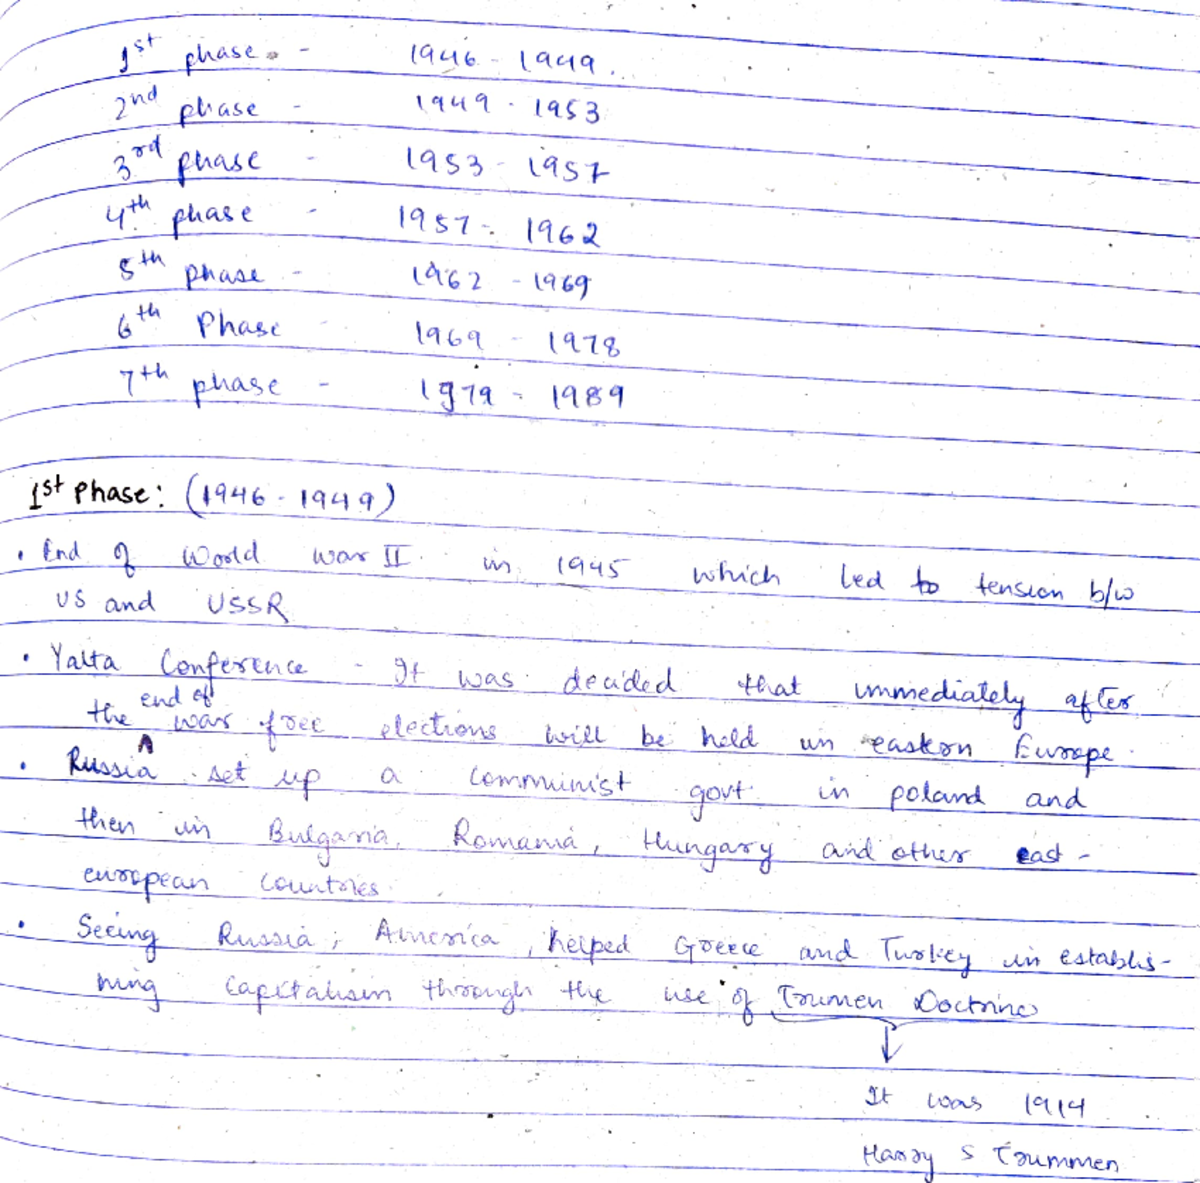 1st phase - 1946 - 1949.
2nd phase - 1949 - 1953
3rd phase - 1953 - 1957
4th phase - 1957 - 1962
5th phase - 1962 - 1969
6th Phase - 1969 - 1978
7th phase - 1979 - 1989
1st Phase: (1946 - 1949)
• End of World war II in 1945 which led to tension b/w
US and USSR
• Yalta Conference - It was decided that immediately after
the end of war free elections will be held in eastern Europe.
• Russia set up a communist govt. in poland and
then in Bulgaria, Romania, Hungary and other east-
european countries.
• Seeing Russia, America, helped Greece and Turkey in establis-
hing Capitalism through the use of Trumen Doctrine
It was 1914
Harry S Trummen